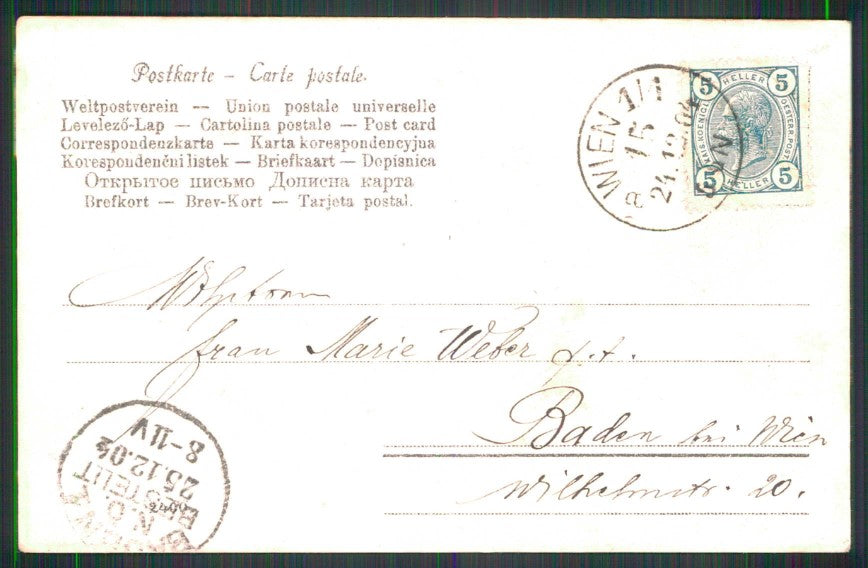 Postkarte – Carte postale.
Weltpostverein — Union postale universelle
Levelező-Lap — Cartolina postale — Post card
Correspondenzkarte — Karta korespondencyjna
Korespondenční listek — Briefkaart — Dopisnica
Открытое письмо Дописна карта
Brefkort — Brev-Kort — Tarjeta postal.
WIEN 1/1
15
24.12.04
a WIEN
5 HELLER 5
KAIS. KÖNIGL.
OESTERR. POST
5 HELLER 5
Frau Marie Weber
Baden bei Wien
Wilhelmstr. 20.
BADEN
N.Ö.
BESTELLT
25.12.04
8-11V